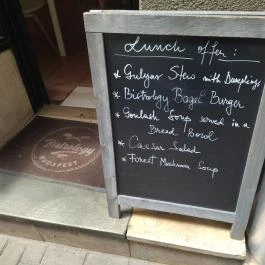 Lunch offer:
* Gulyas Stew with Dumplings
* Bistrology Bagel Burger
* Goulash Soup served in a
Bread Bowl
* Caesar Salad
* Forest Mushroom Soup
Bistrology
BUDAPEST